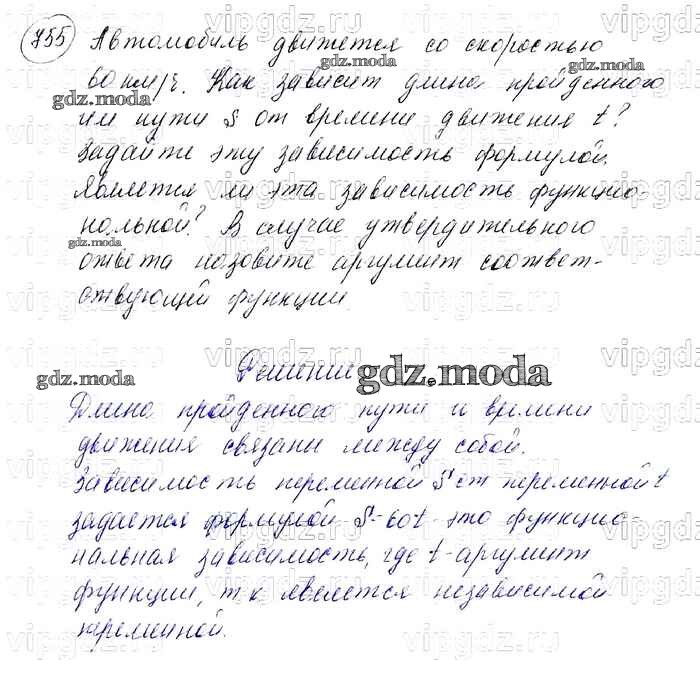 755 Автомобиль движется со скоростью
60 км/ч. Как зависит длина пройденного
им пути S от времени движения t?
Задайте эту зависимость формулой.
Является ли эта зависимость функцио-
нальной? В случае утвердительного
ответа назовите аргумент соответ-
ствующей функции.
Решение
gdz.moda
Длина пройденного пути и времени
движения связаны между собой.
Зависимость переменной S от переменной t
задается формулой S=60t-это функцио-
нальная зависимость, где t-аргумент
функции, т к является независимой
переменной.